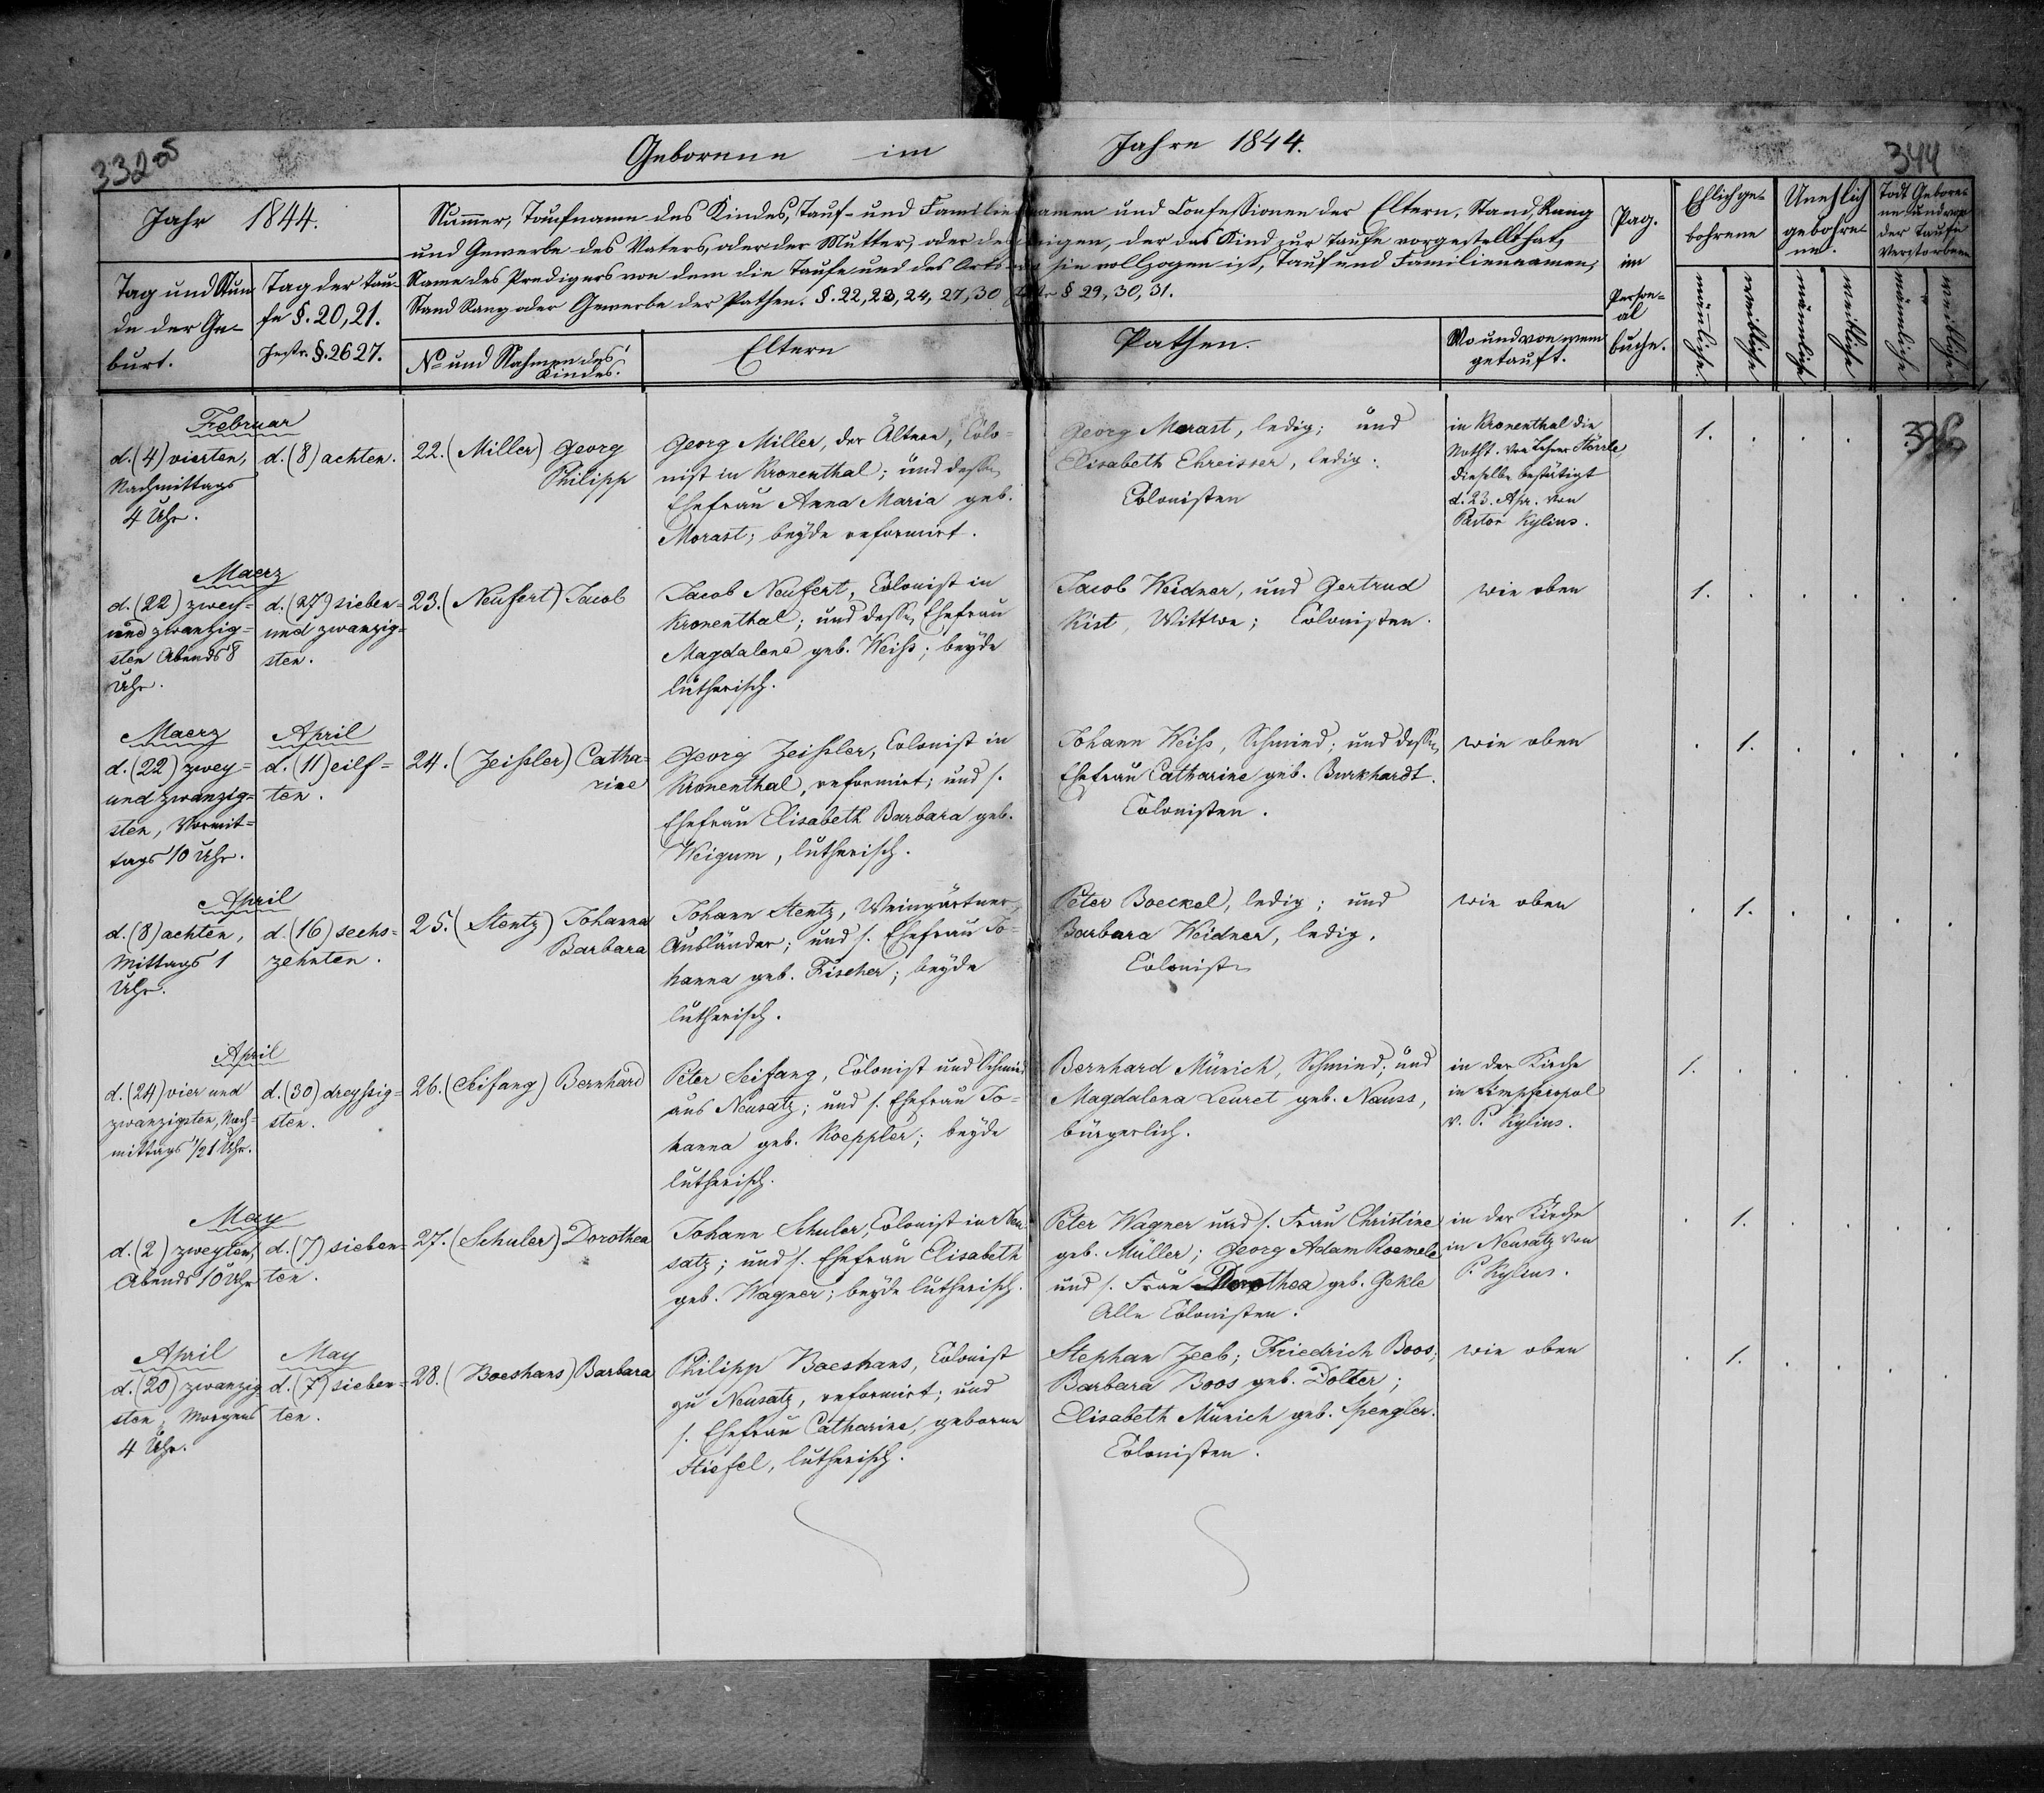 332 об
Geborene im Jahre 1844.
344
Jahr 1844.
Nummer, Taufname des Kindes, Tauf- und Familiennamen und Confessionen der Eltern, Stand, Rang
und Gewerbe des Vaters, oder der Mutter, oder desjenigen, der das Kind zur Taufe vorgestellt hat,
Name des Predigers von dem die Taufe und des Orts wo sie vollzogen ist, Tauf und Familiennamen,
Stand Rang oder Gewerbe der Pathen. §. 22, 23, 24, 27, 30 Instr § 29, 30, 31.
Tag und Stun-
de der Ge-
burt.
Tag der Tau-
fe §. 20, 21.
Instr. §. 26 27.
No und Nahmen des
Kindes.
Eltern
Pathen.
Wo und von wem
getauft.
Pag.
im
Person-
al
buche.
Ehlich ge-
bohrene
Unehlich
gebohre-
ne.
Todt Gebore-
ne und vor
der Taufe
Verstorbene
männliche.
weibliche
männliche
weibliche
männliche
weibliche
Februar
d. (4) vierten,
Nachmittags
4 Uhr.
d. (8) achten.
22. (Miller) Georg
Philipp
Georg Miller, der Ältere, Colo-
nist in Kronenthal; und dessen
Ehefrau Anna Maria geb.
Morast; beyde reformirt.
Georg Morast, ledig; und
Elisabeth Ehreisser, ledig.
Colonisten
in Kronenthal die
Notht. von Lehrer Störrle
dieselbe bestätigt
d. 23. Apr. von
Pastor Kylius.
1. . . .
Maerz
d. (22) zwey=
und zwanzig=
sten Abends 8
Uhr.
d. (27) sieben=
und zwanzig=
sten.
23. (Neufert) Jacob
Jacob Neufert, Colonist in
Kronenthal; und dessen Ehefrau
Magdalena geb. Weiss; beyde
lutherisch.
Jacob Weidner, und Gertrud
Kist, Wittwe; Colonisten.
wie oben
1. . . . . .
Maerz
d. (22) zwey=
und zwanzig=
sten, Vormit=
tags 10 Uhr.
April
d. (11) eilf=
ten.
24. (Zeissler) Catha=
rine
Georg Zeissler, Colonist in
Kronenthal, reformirt; und s.
Ehefrau Elisabeth Barbara geb.
Weigum, lutherisch.
Johann Weiss, Schmied; und dessen
Ehefrau Catharine geb. Burkhardt.
Colonisten.
wie oben
. 1. . . . .
April
d. (8) achten,
Mittags 1
Uhr.
d. (16) sechs=
zehnten.
25. (Stentz) Johanna
Barbara
Johann Stentz, Weingärtner,
Ausländer; und s. Ehefrau Jo=
hanna geb. Fischer; beyde
lutherisch.
Peter Boeckel, ledig; und
Barbara Weidner, ledig.
Colonisten
wie oben
. 1. . . . .
April
d. (24) vier und
zwanzigsten, Nach=
mittags 1/2 1 Uhr.
d. (30) dreyssig=
sten.
26. (Seifang) Bernhard
Peter Seifang, Colonist und Schmied
aus Neusatz; und s. Ehefrau Jo=
hanna geb. Koeppler; beyde
lutherisch.
Bernhard Münich, Schmied; und
Magdalena Leuret geb. Nauss,
bürgerlich.
in der Kirche
in Simpheropol
v. P. Kylius.
1. . . . . .
May
d. (2) zweyten,
Abends 10 Uhr
d. (7) sieben=
ten.
27. (Schuler) Dorothea
Johann Schuler, Colonist in Neu
satz; und s. Ehefrau Elisabeth
geb. Wagner; beyde lutherisch.
Peter Wagner und s. Frau Christine
geb. Müller; Georg Adam Roemele
und s. Frau Dorothea geb. Gekle
Alle Colonisten.
in der Kirche
in Neusatz von
P. Kylius.
. 1. . . . .
April
d. (20) zwanzig
sten, Morgens
4 Uhr.
May
d. (7) sieben=
ten.
28. (Boeshans) Barbara
Philipp Baeshans, Colonist
zu Neusatz, reformirt; und
s. Ehefrau Catharine, geborne
Stiefel, lutherisch.
Stephan Zeeb; Friedrich Boos;
Barbara Boos geb. Dolter;
Elisabeth Münich geb. Spengler.
Colonisten.
wie oben
. 1. . . . .